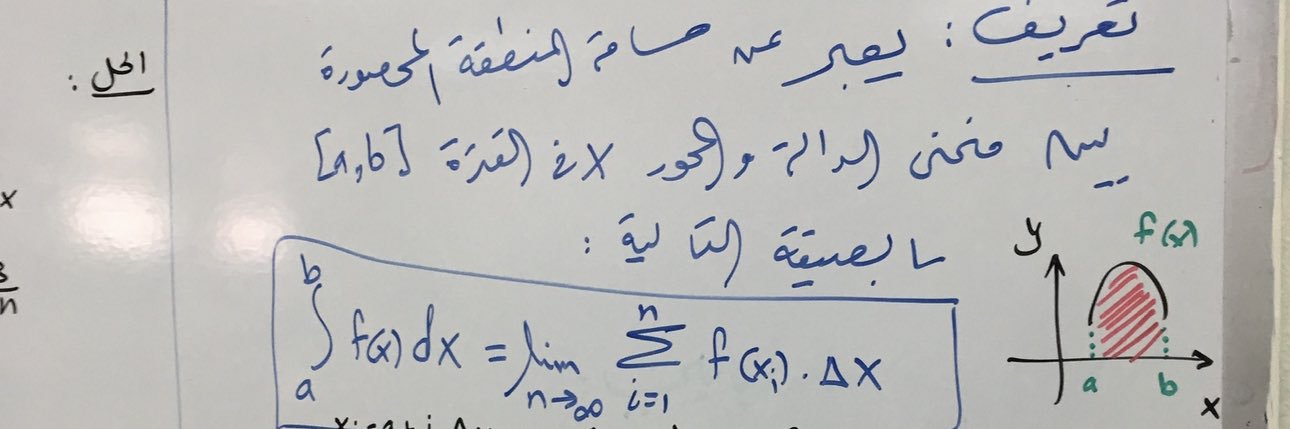 تعريف : يعبر عن مساحة المنطقة المحصورة
بين منحنى الدالة والمحور x في الفترة [a,b]
بالصيغة التالية :
∫_a^b f(x) dx = lim_{n→∞} ∑_{i=1}^{n} f(x_i) . Δx
y
f(x)
a b
x
الحل :
x
n